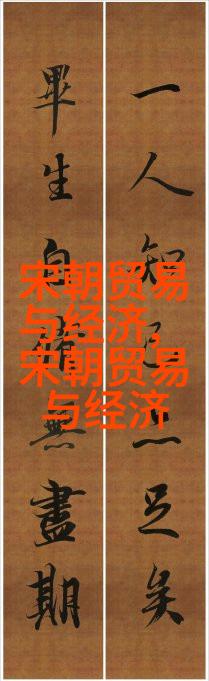 一人知己亦足矣
畢生自脩無盡期
宋朝贸易
与经济,
宋朝贸易
与经济